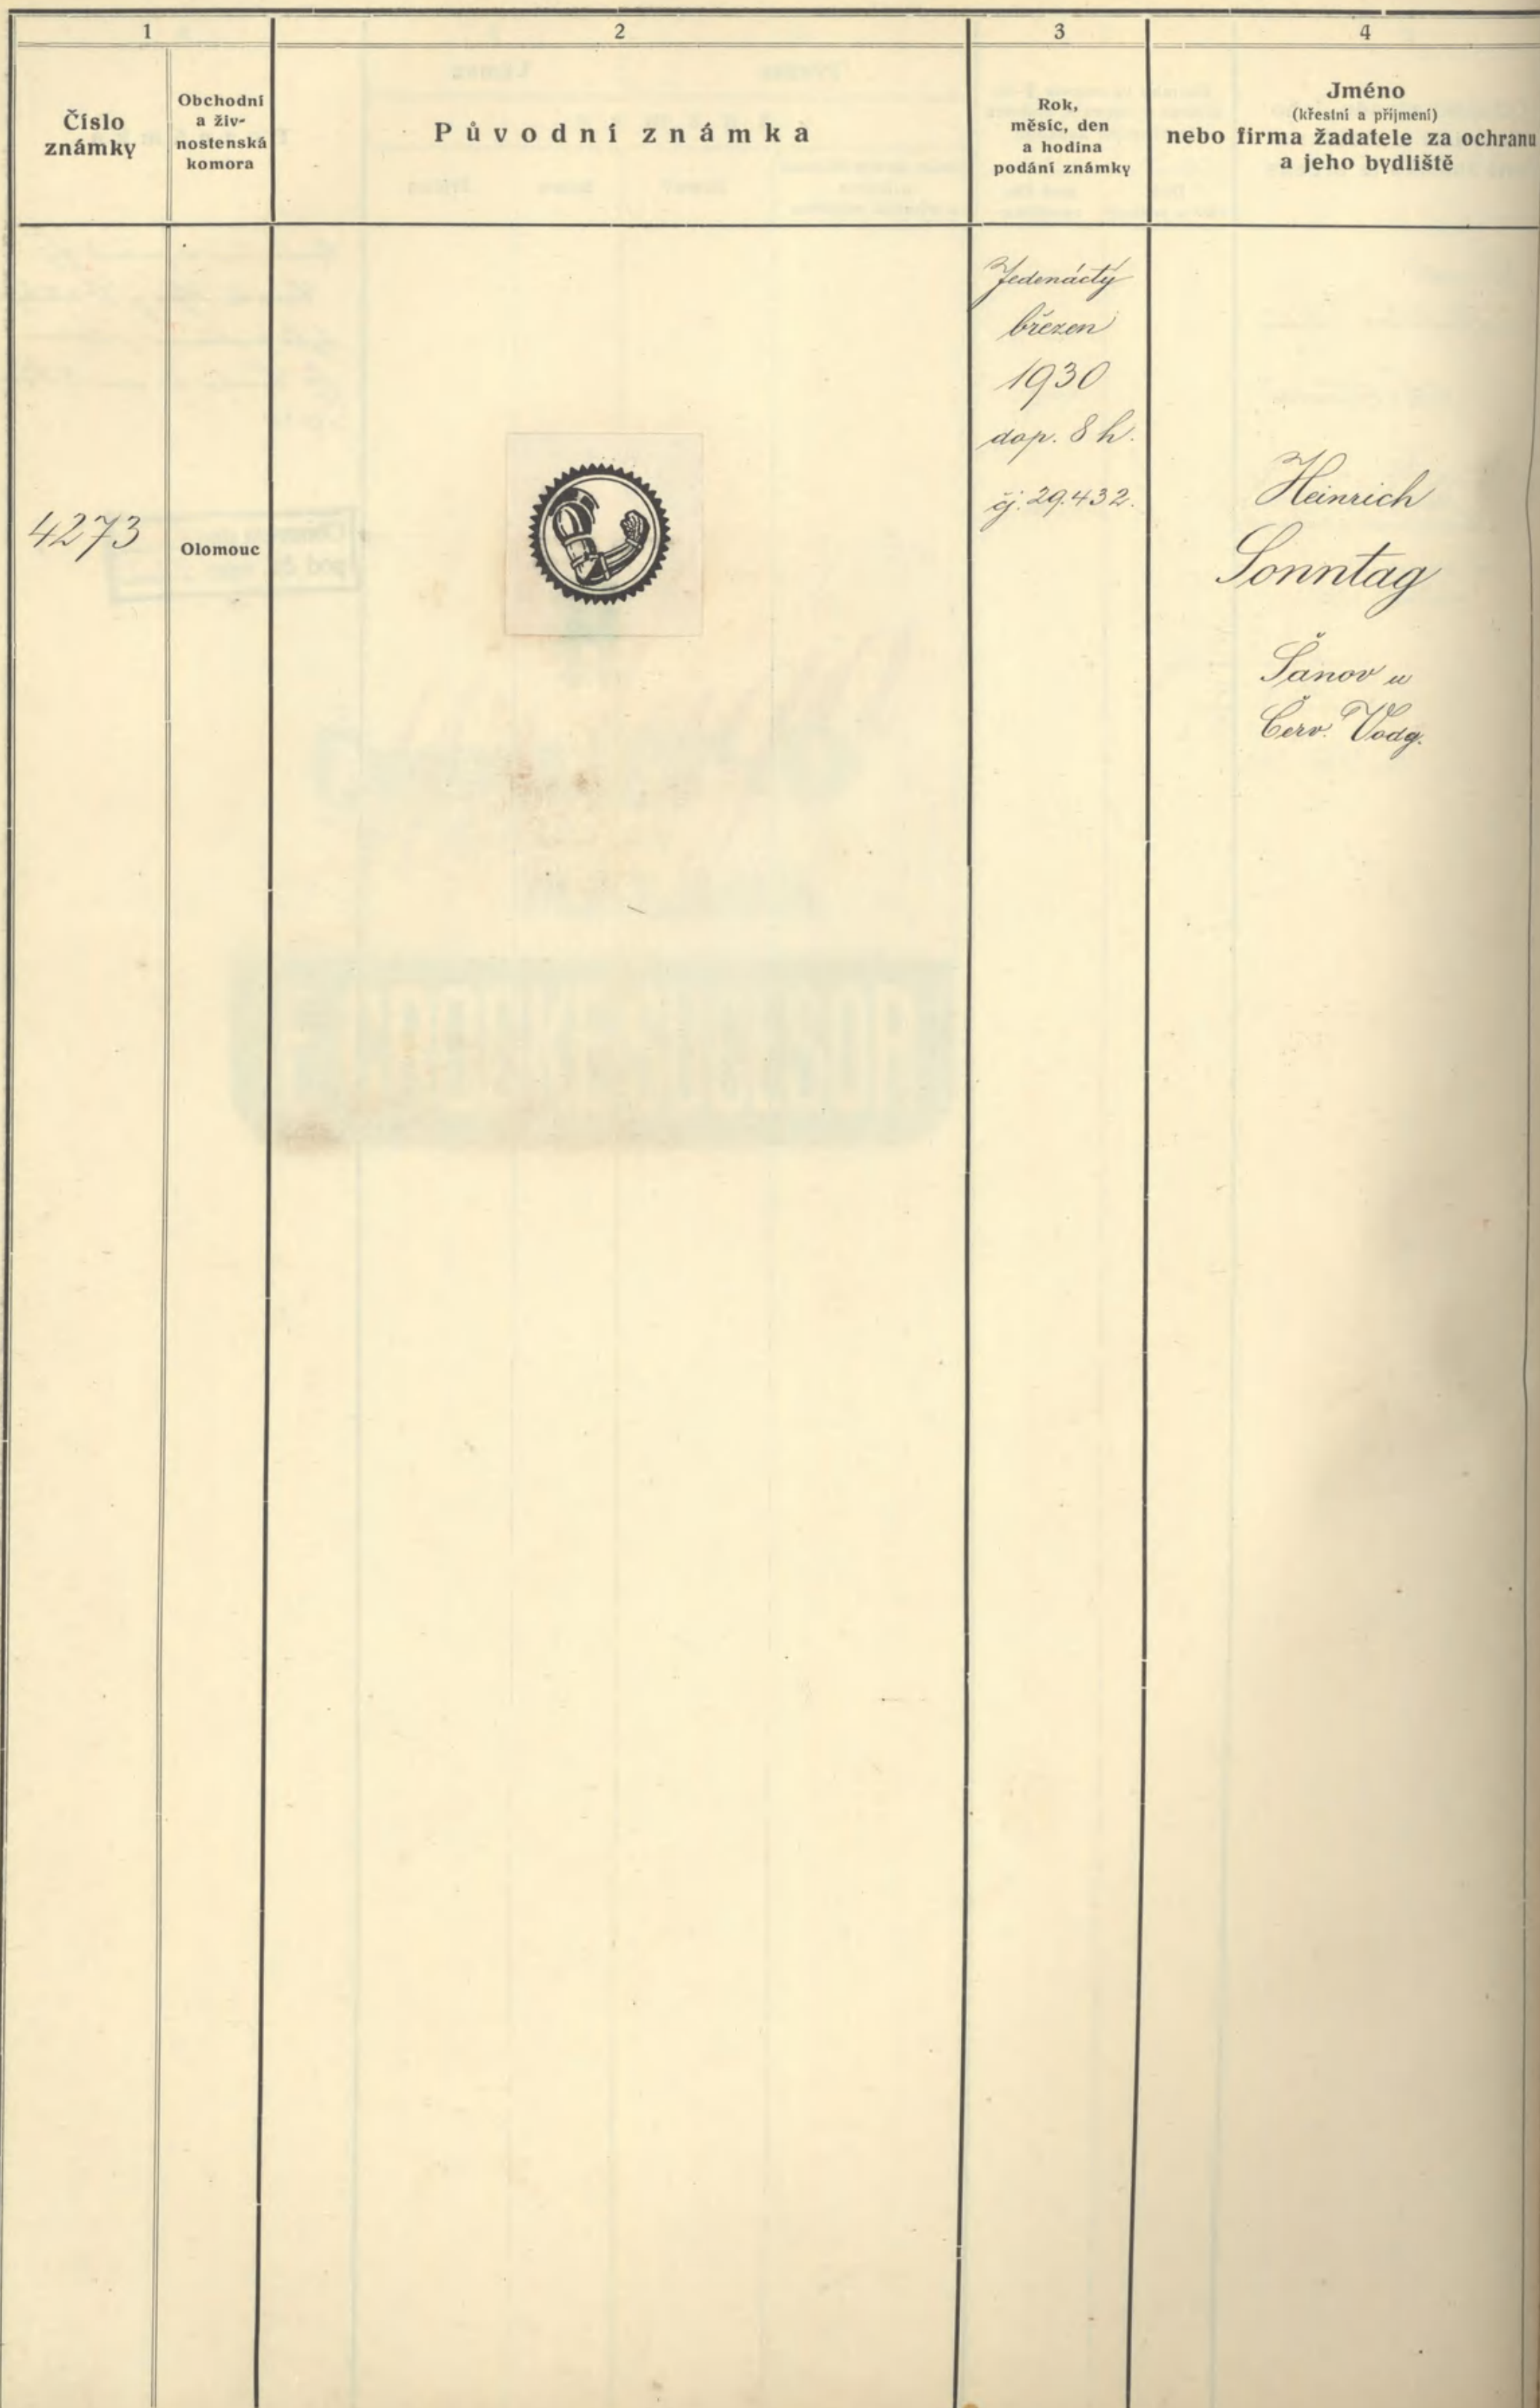 1
2
3
4
Číslo
známky
Obchodní
a živ-
nostenská
komora
Původní známka
Rok,
měsíc, den
a hodina
podání známky
Jméno
(křestní a příjmení)
nebo firma žadatele za ochranu
a jeho bydliště
4273
Olomouc
Jedenáctý
březen
1930
dop. 8 h.
čj. 29.432.
Heinrich
Sonntag
Šanov u
Červ. Vody.